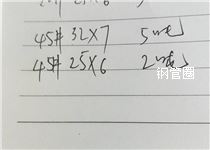 45# 32X7 5吨
45# 25X6 2吨
钢管圈